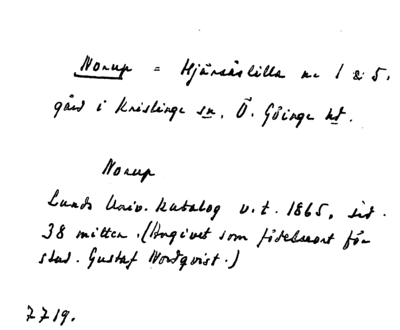 Norup = Hjärsåslilla nr 1 & 5.
gård i Knislinge sn, Ö. Göinge hd.
Norup
Lunds Univ. Katalog v.t. 1865, sid.
38 mitten. (Angivet som födelseort för
stud. Gustaf Nordqvist.)
7719.